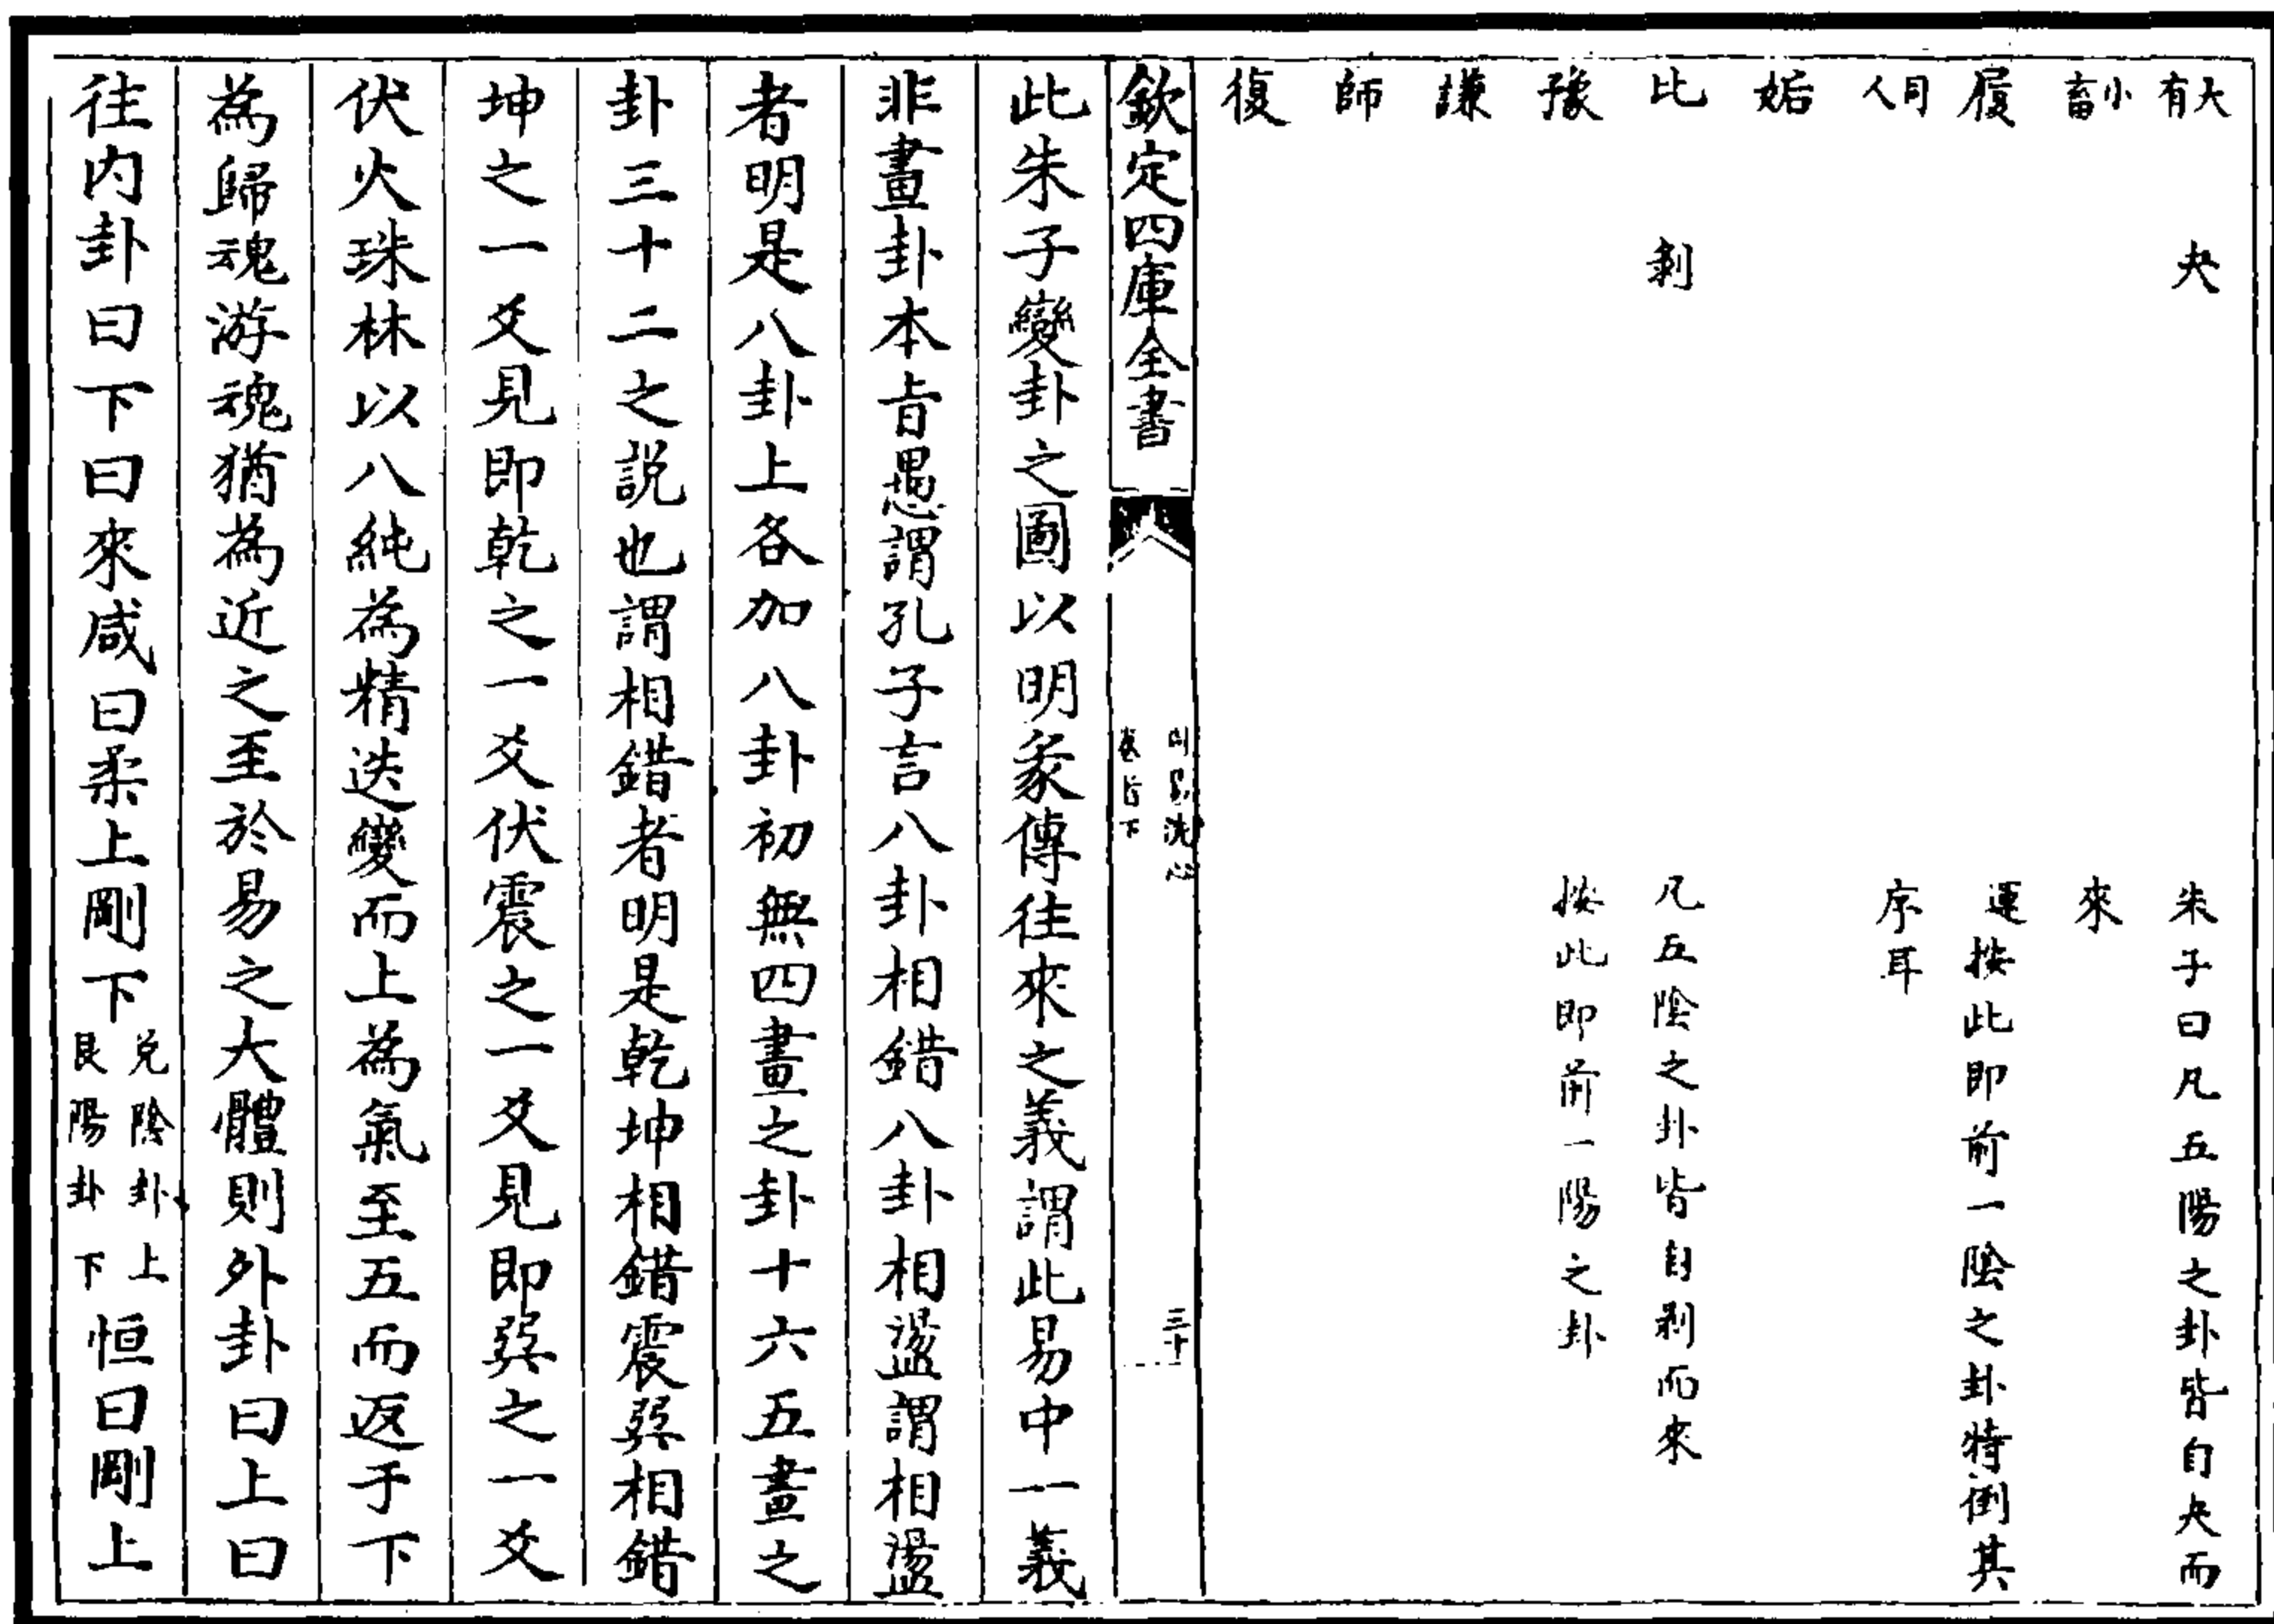 大有　夬　朱子曰凡五陽之卦皆自夬而
小畜　來
履　運按此即前一陰之卦特倒其
同人　序耳
姤
比　剝　凡五陰之卦皆自剝而來
豫　按此即前一陽之卦
謙
師
復
欽定四庫全書
周易洗心
卷首下
三十
此朱子變卦之圖以明彖傳往來之義謂此易中一義
非畫卦本旨愚謂孔子言八卦相錯八卦相盪謂相盪
者明是八卦上各加八卦初無四畫之卦十六五畫之
卦三十二之説也謂相錯者明是乾坤相錯震巽相錯
坤之一爻見即乾之一爻伏震之一爻見即巽之一爻
伏火珠林以八純為精迭變而上為氣至五而返于下
為歸魂游魂猶為近之至於易之大體則外卦曰上曰
往内卦曰下曰來咸曰柔上剛下兑陰卦上艮陽卦下恒曰剛上